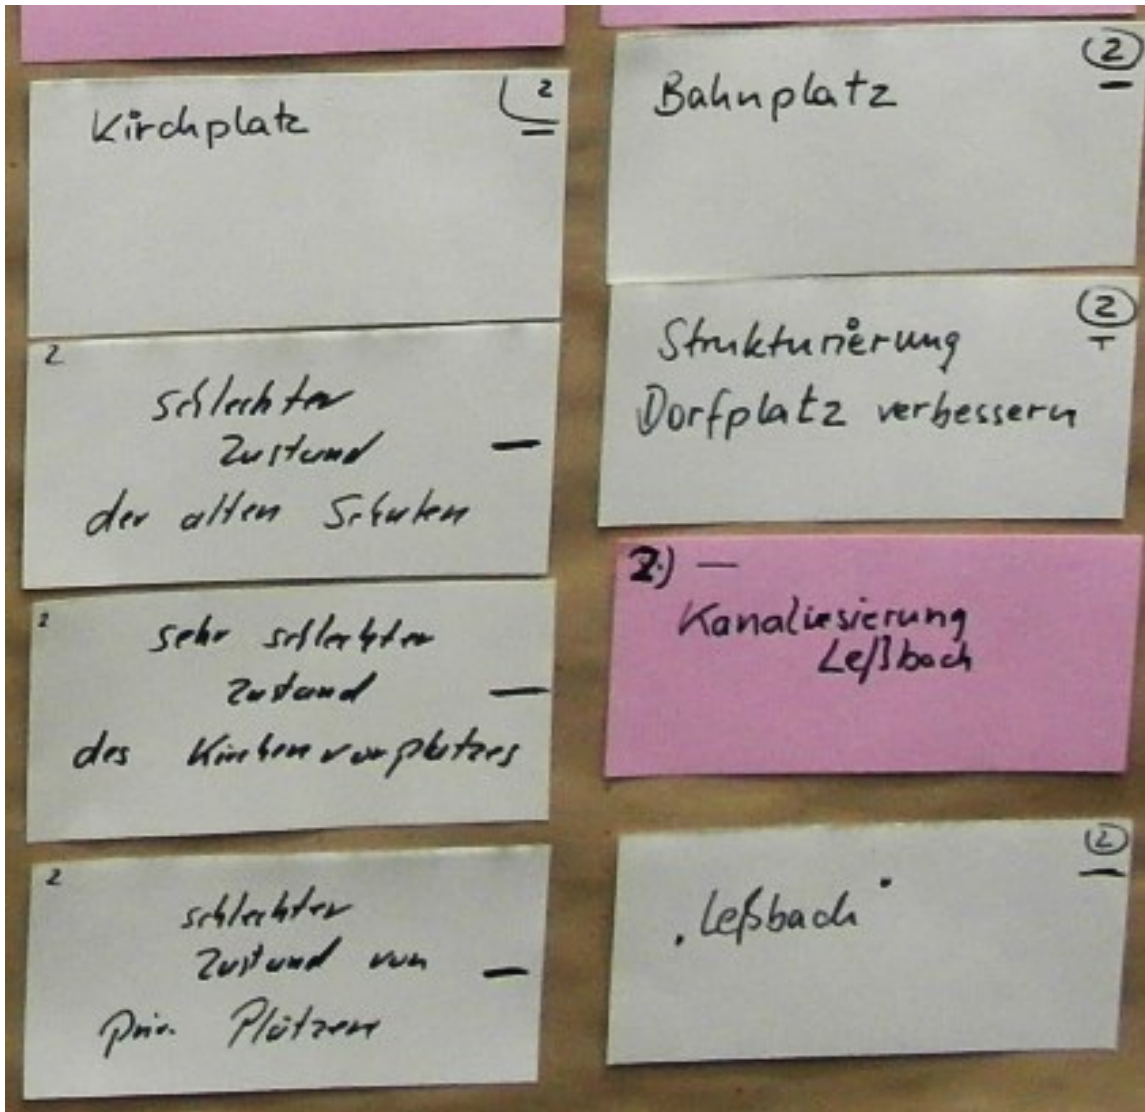 Kirchplatz 2
—
2
schlechter
Zustand —
der alten Schulen
2
sehr schlechter
Zustand —
des Kirchenvorplatzes
2
schlechter
Zustand von —
priv. Plätzen
Bahnplatz 2
—
2
Strukturierung
Dorfplatz verbessern
2.) —
Kanaliesierung
Leßbach
2
—
"Leßbach"